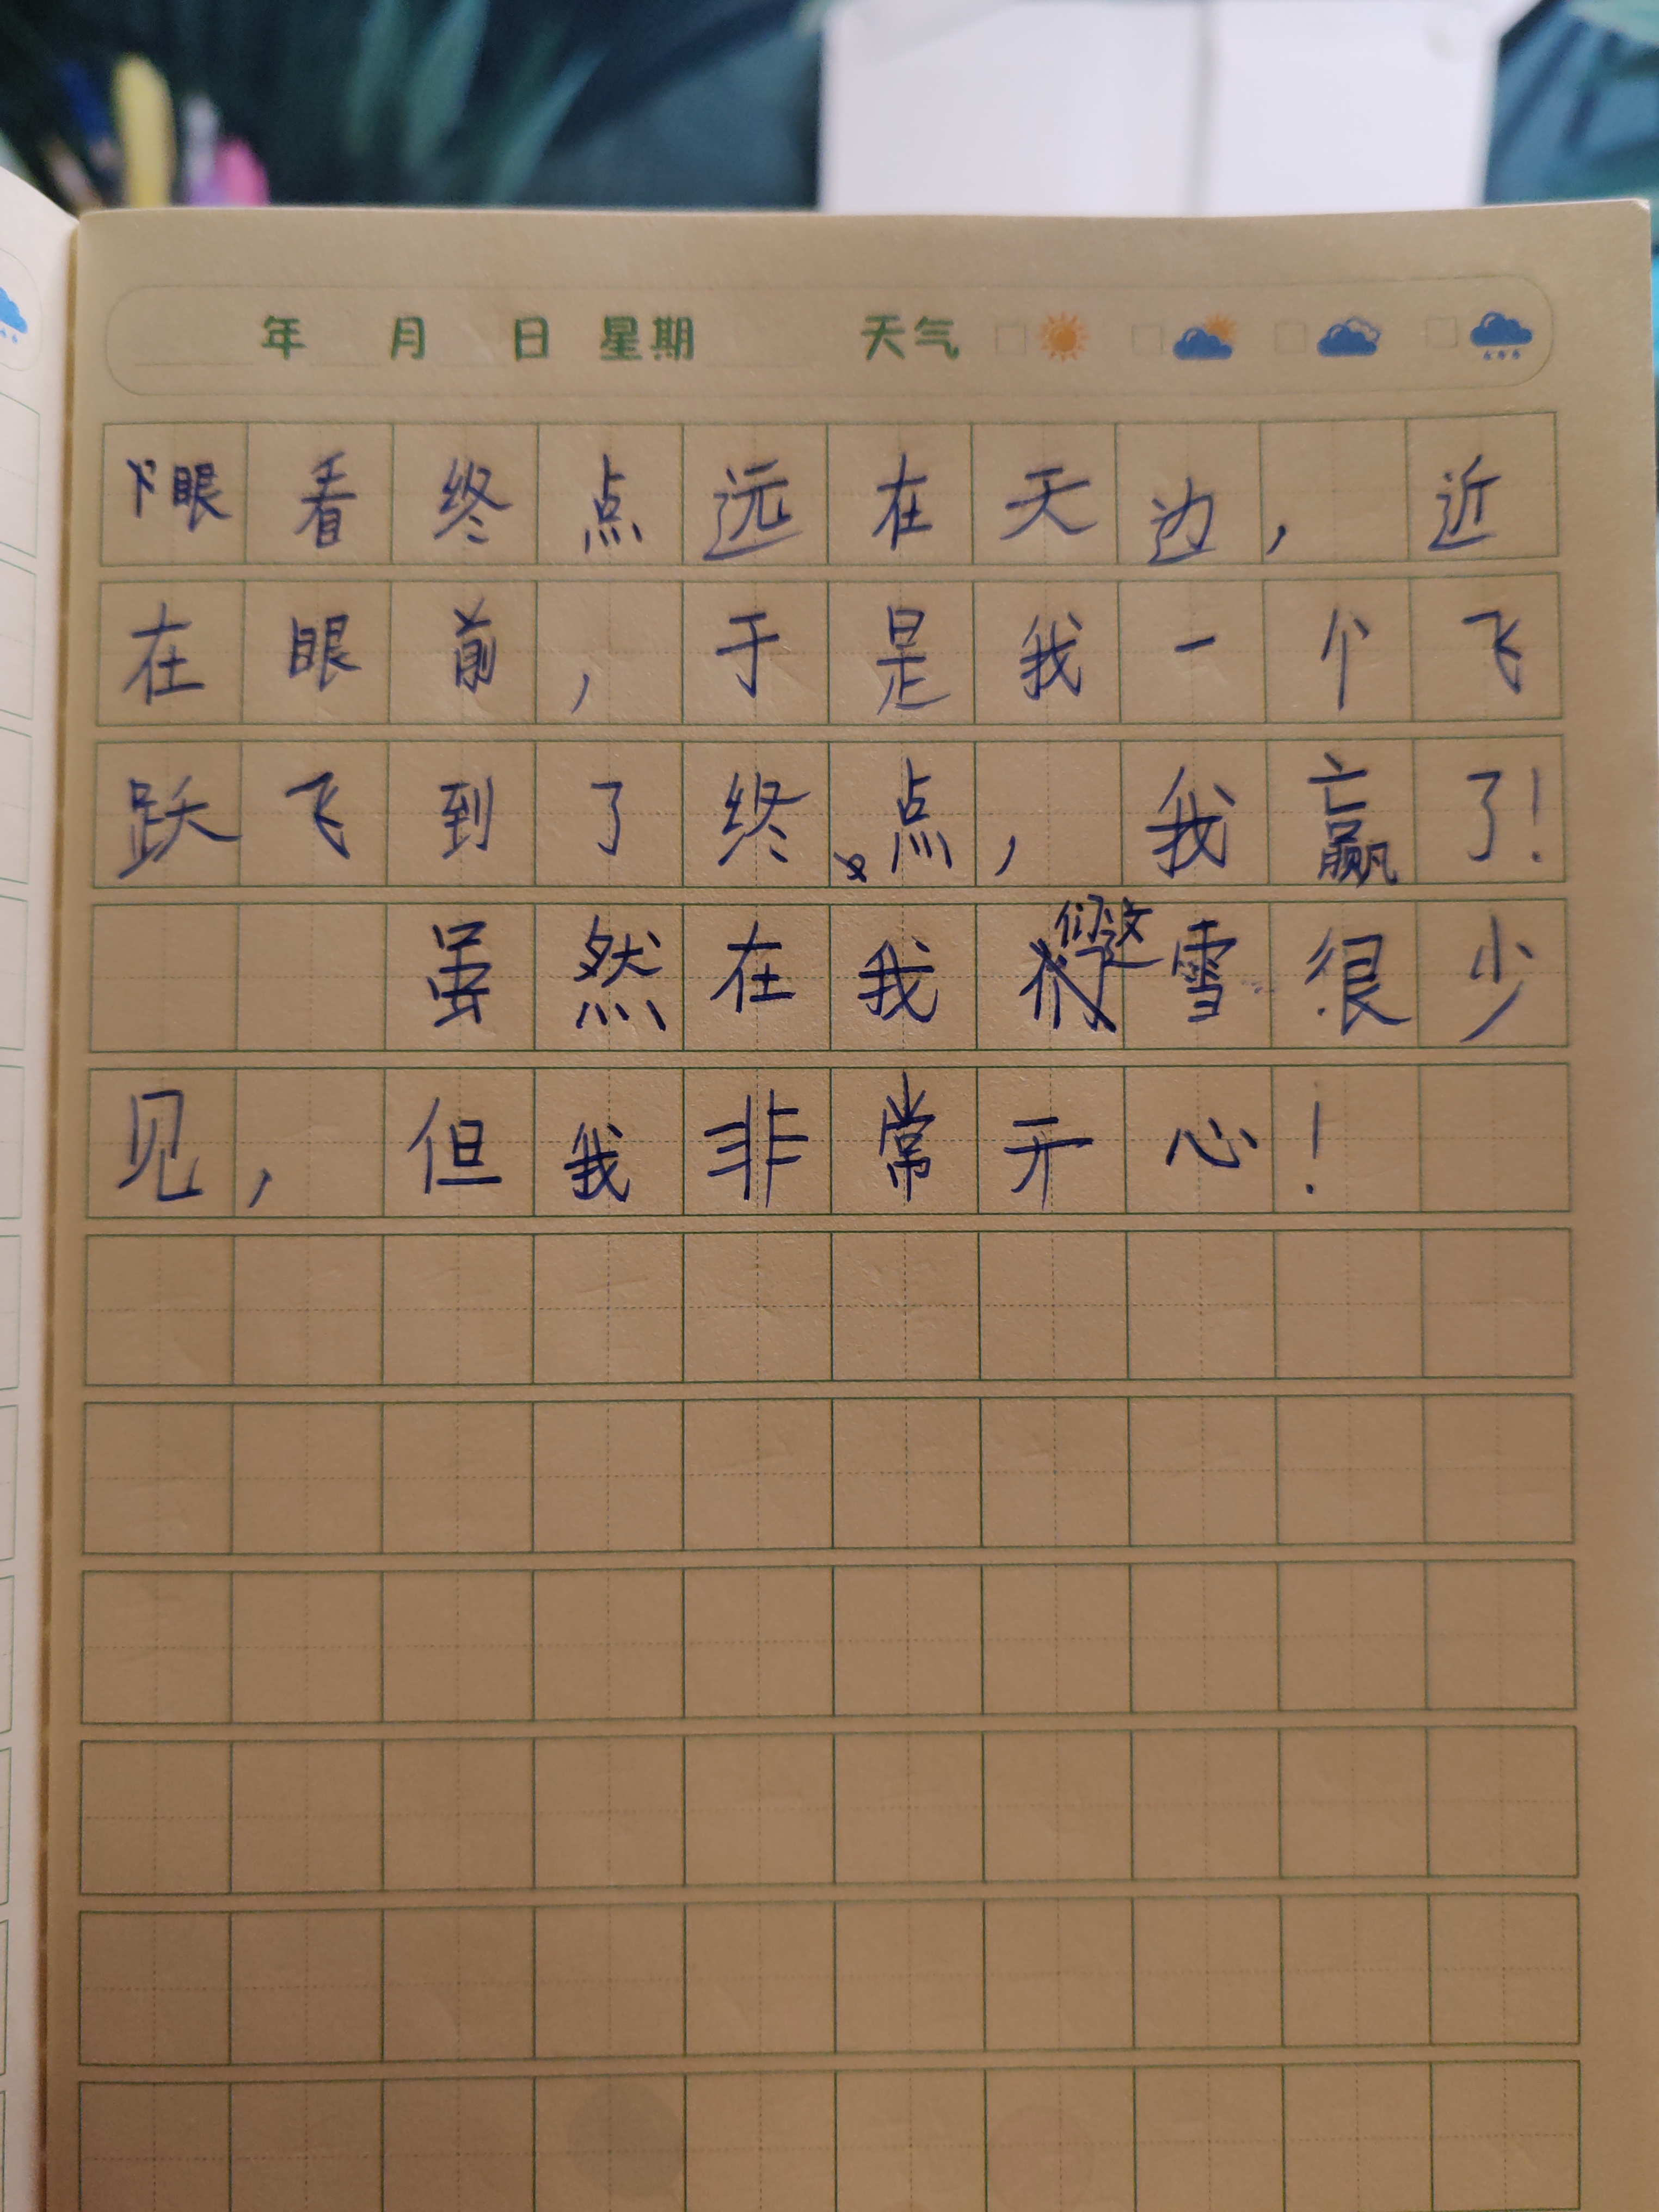 年 月 日 星期 天气
眼看终点远在天边，近
在眼前，于是我一个飞
跃飞到了终点，我赢了！
虽然在我们这雪很少
见，但我非常开心！